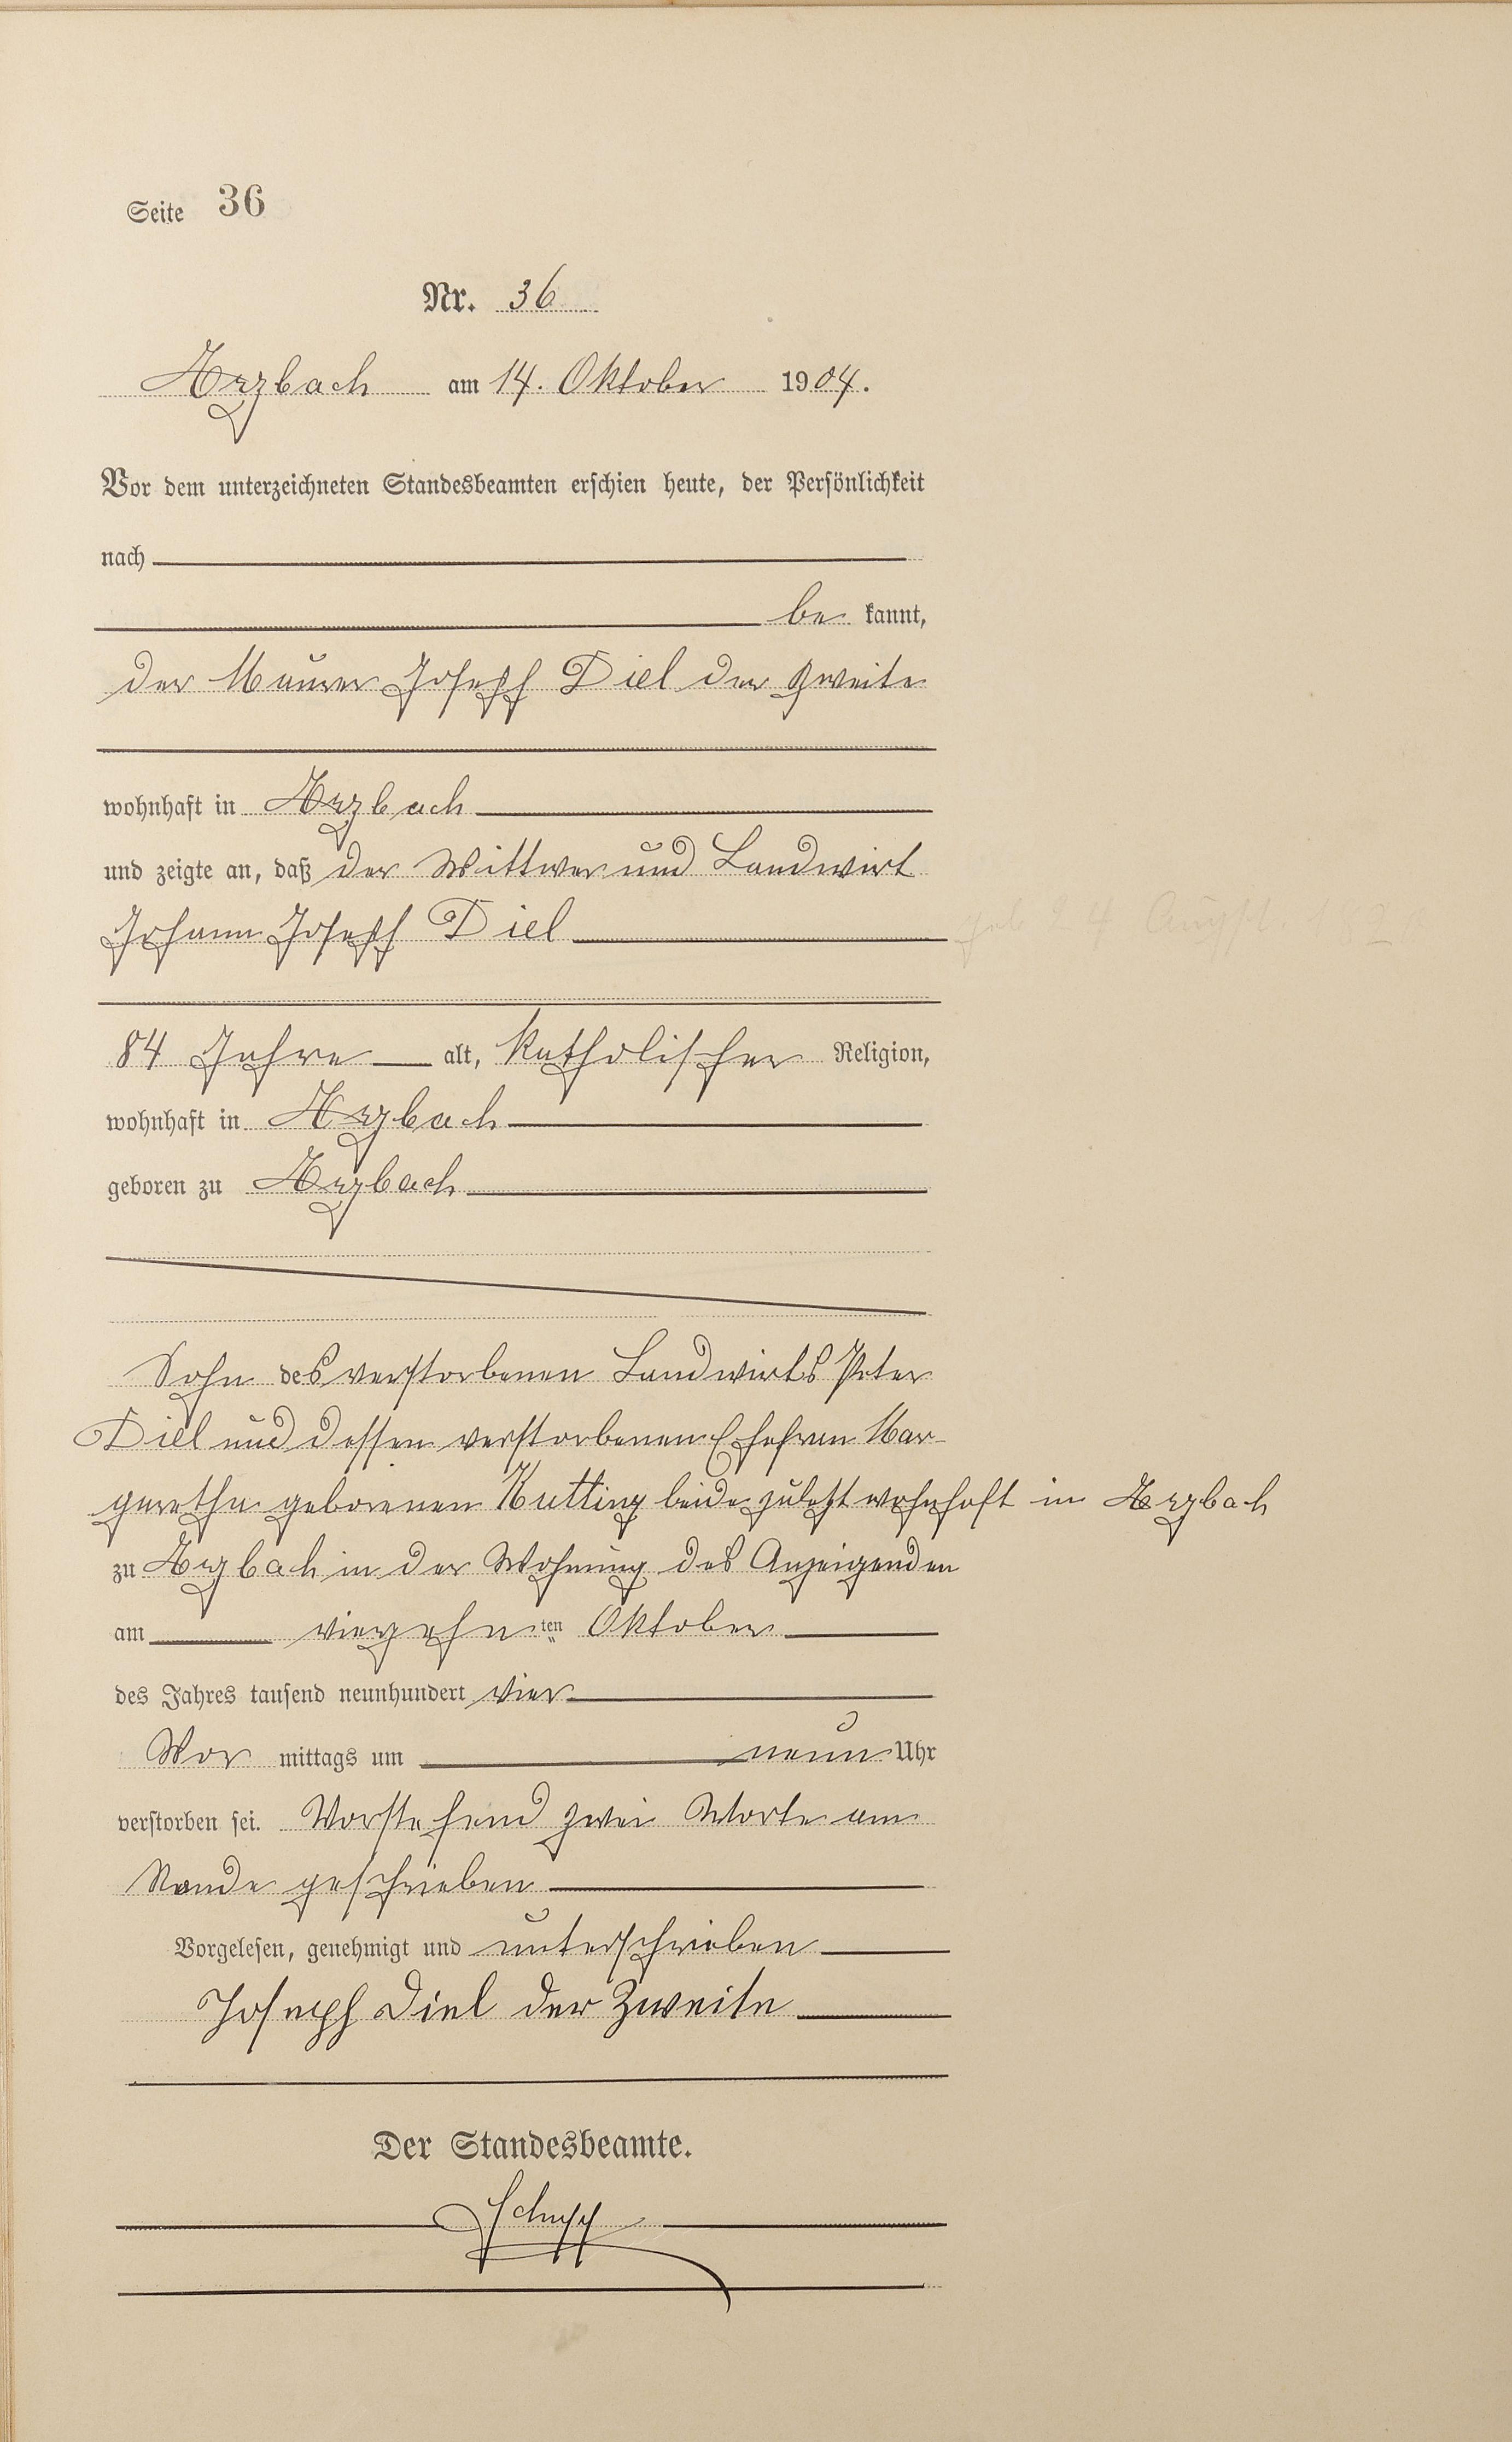 Seite 36
Nr. 36
Arzbach am 14. Oktober 1904.
Vor dem unterzeichneten Standesbeamten erschien heute, der Persönlichkeit
nach
be kannt,
der Maurer Joseph Diel der Zweite
wohnhaft in Arzbach
und zeigte an, daß der Wittwer und Landwirt
Johann Joseph Diel
geb 24 August
84 Jahre alt, katholischer Religion,
wohnhaft in Arzbach
geboren zu Arzbach
Sohn des verstorbenen Landwirts Peter
Diel und dessen verstorbenen Ehefrau Mar-
garetha geborenen Kutting beide zuletzt wohnhaft in Arzbach
zu Arzbach in der Wohnung des Anzeigenden
am vierzehn ten Oktober
des Jahres tausend neunhundert vier
Vor mittags um neun Uhr
verstorben sei. Vorstehend zwei Worte am
Rande geschrieben
Vorgelesen, genehmigt und unterschrieben
Joseph Diel der Zweite
Der Standesbeamte.